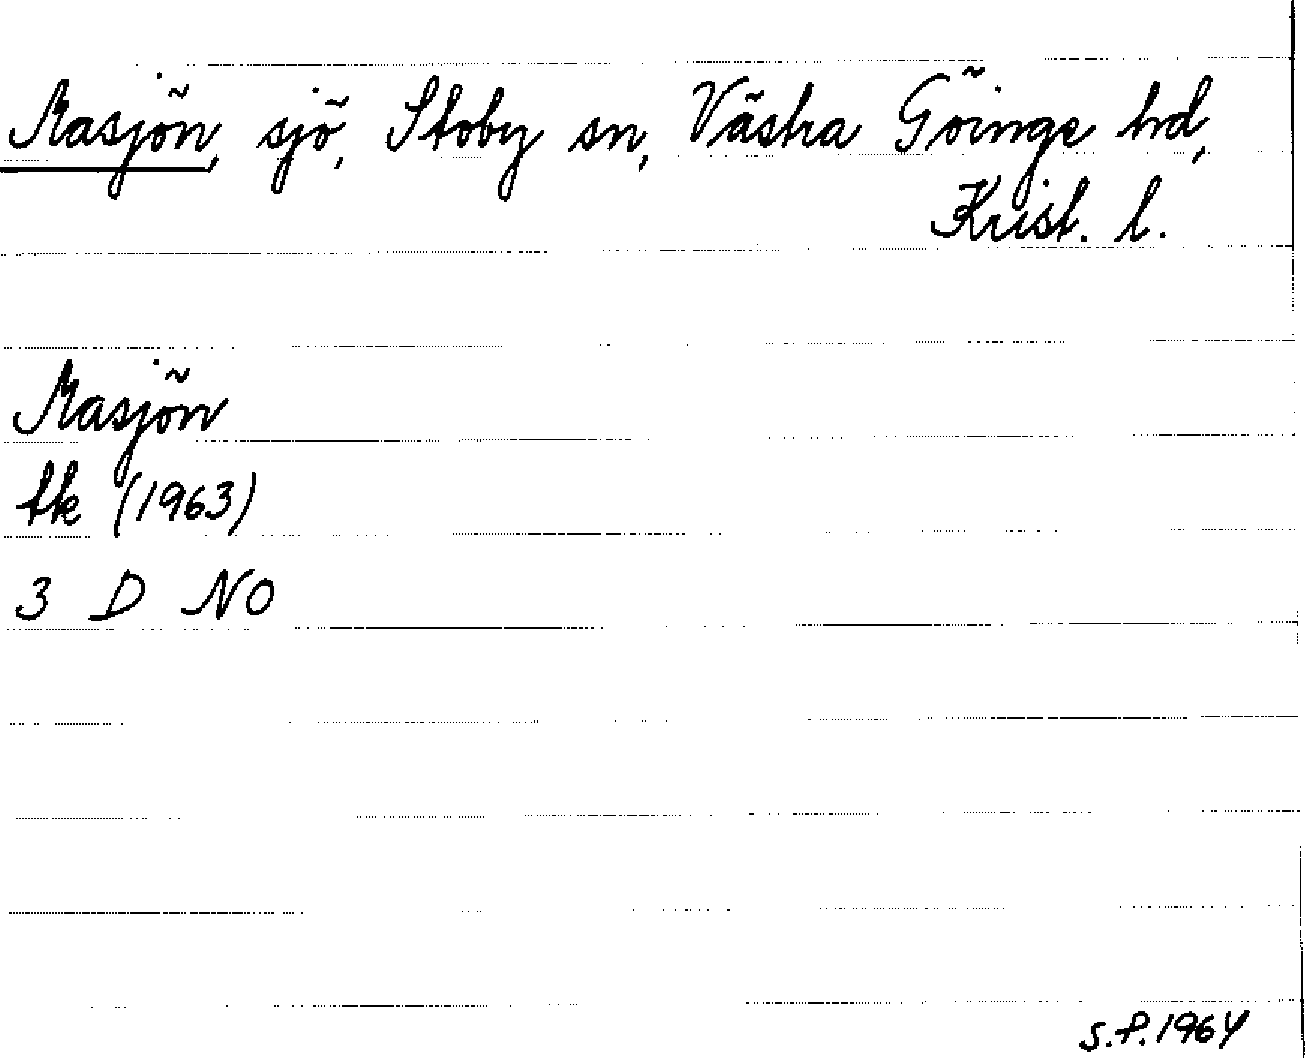 Masjön, sjö, Stoby sn, Västra Göinge hd,
Krist. l.
Masjön
tk (1963)
3 D NO
S.P. 1964